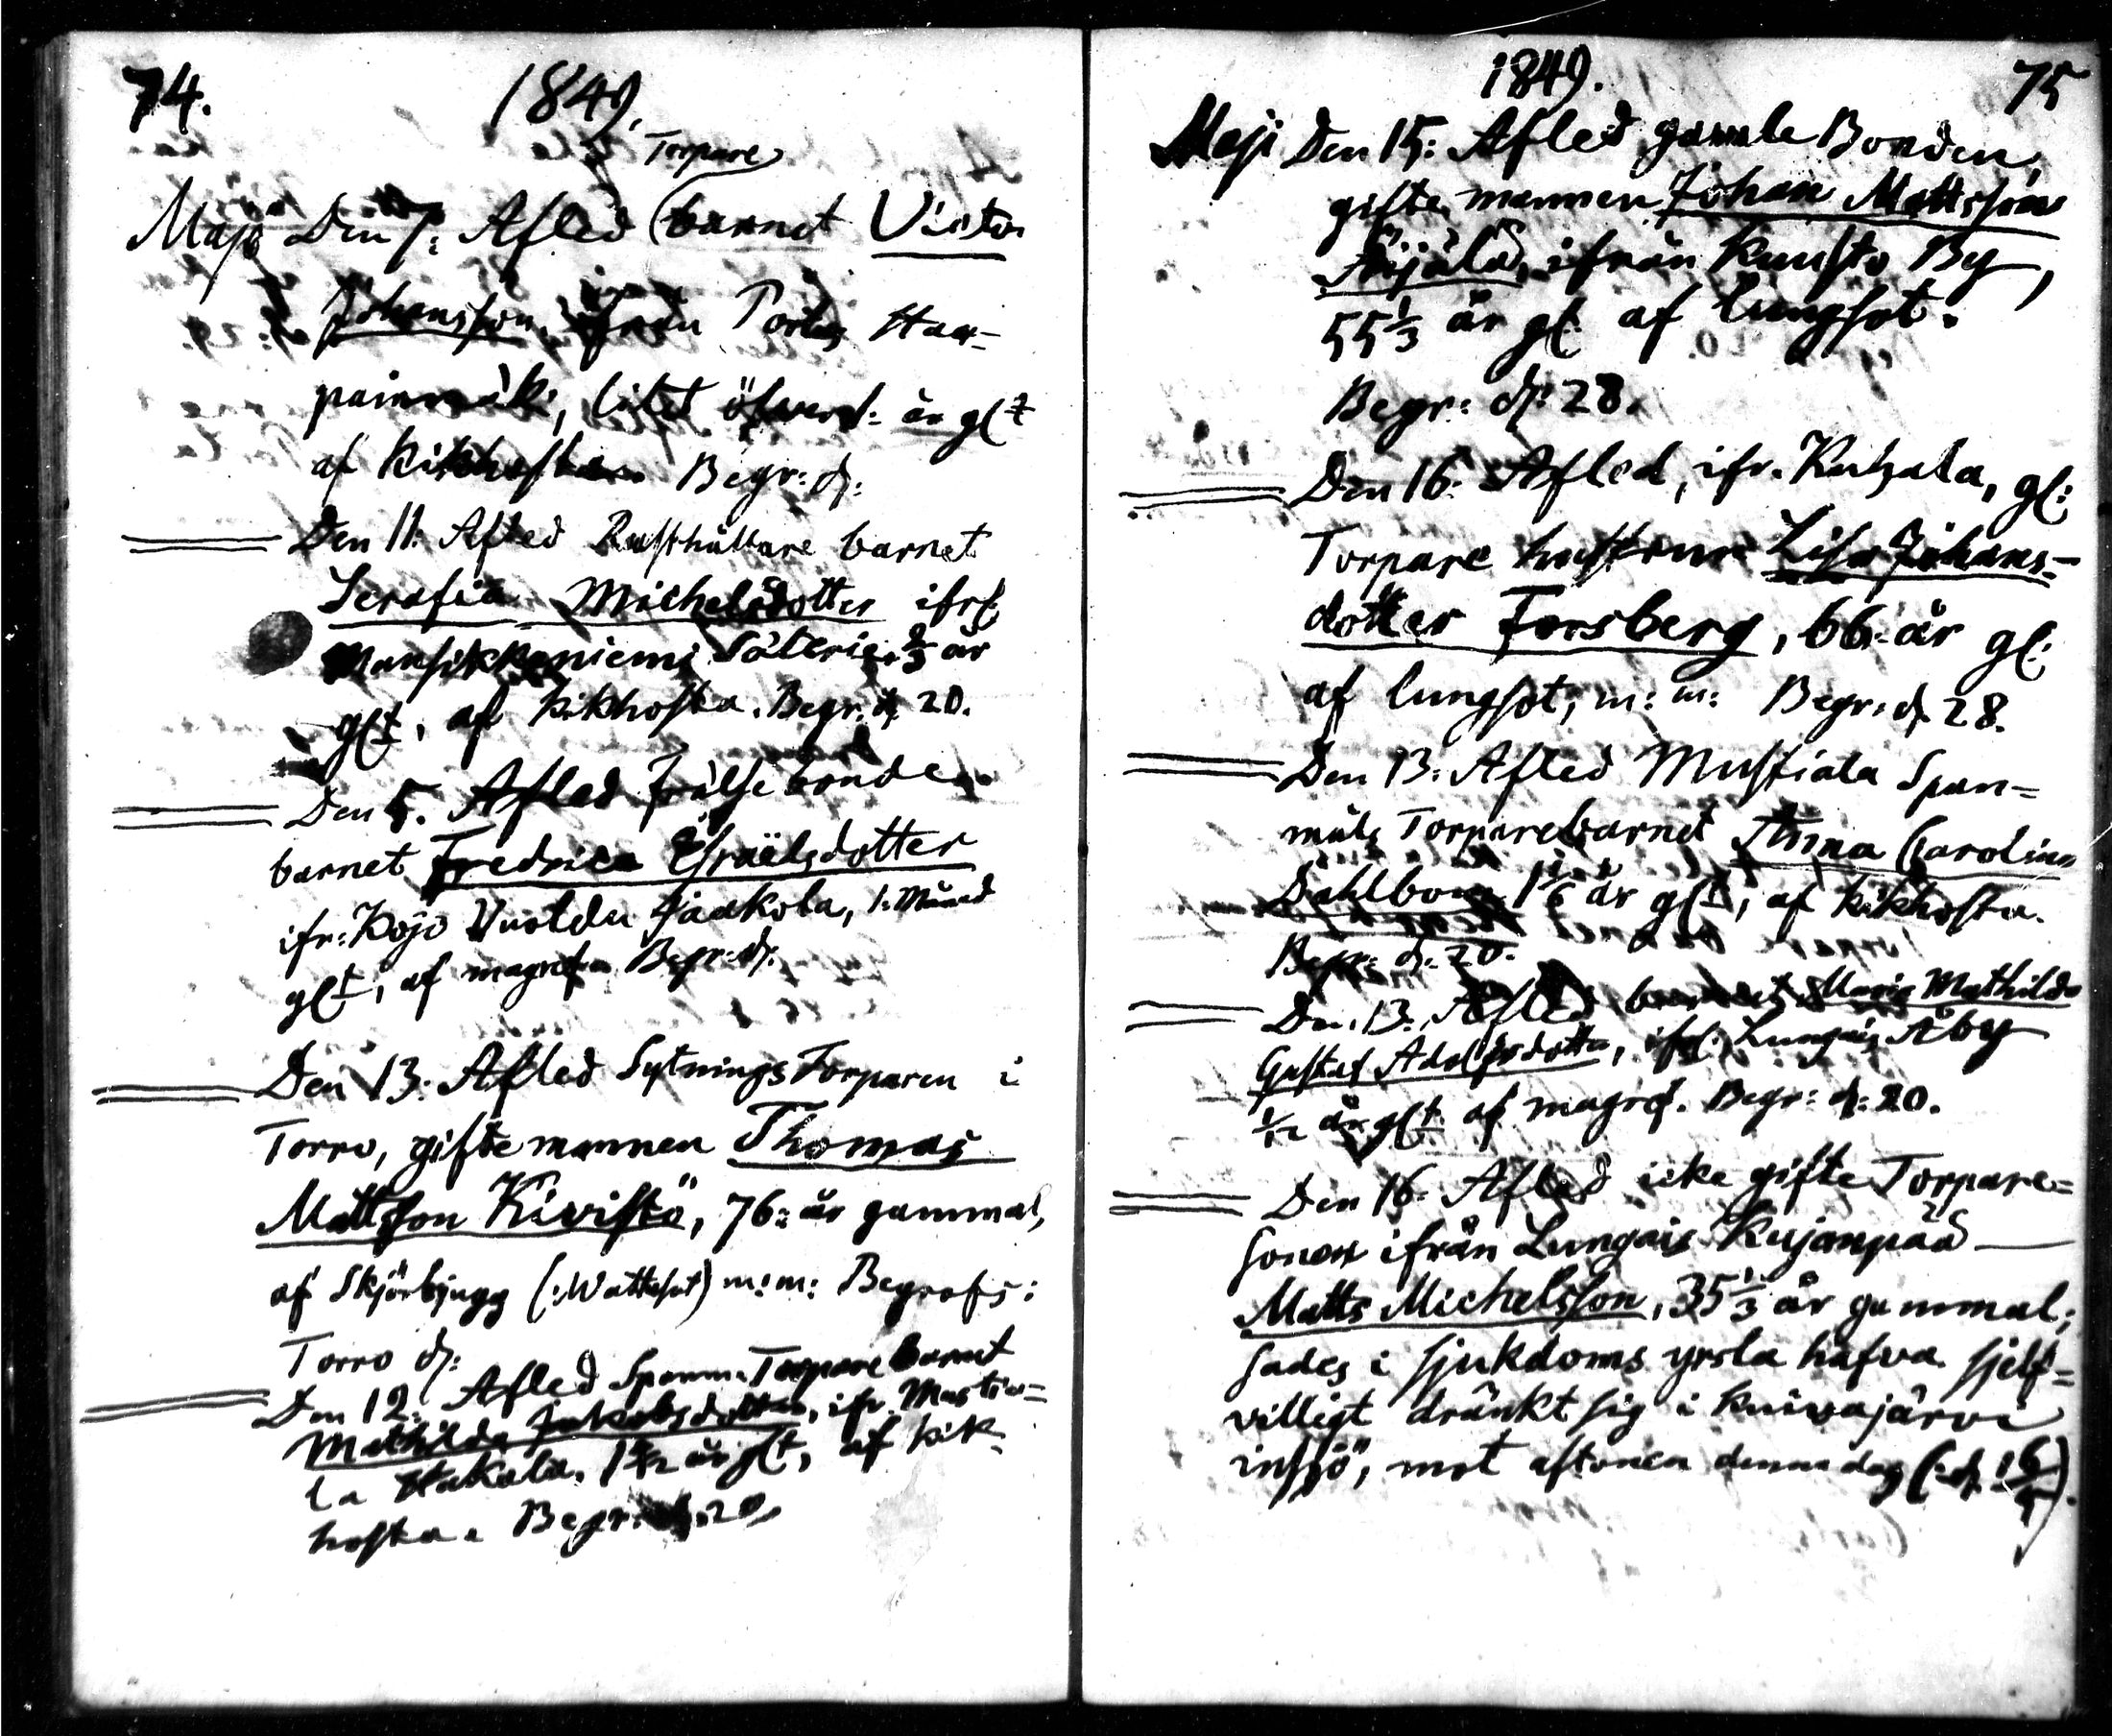 74.
1849.
Torpare
Maji Den 7: Afled barnet Victor
Johansson, ifrån Portas Haa-
painmäki, litet öfver 1: år glt
af kikhosta. Begr: d:
Den 11: Afled Rusthållare barnet
Serafia Michelsdotter ifr:
Mansikkoniemi Säteri, 2/3 år
glt, af kikhosta. Begr. d. 20.
Den 5. Afled frälse bonde
barnet Fredrica Esraëlsdotter
ifr: Kojo Jaakola, 1: Månad
glt, af magref. Begr: d:
Den 13: Afled Sytnings Torparen i
Torro, gifte mannen Thomas
Mattsson Kivistö, 76: år gammal,
af Skjörbjugg (: Wattusot) m: m: Begrafs:
Torro d:
Den 12: Afled Spanm. Torpare Barnet
Mathilda Jakobsdotter, ifr. Mustia-
la Hakala, år glt, af kik-
hosta. Begr: d. 20,
1849.
75
Maji Den 15: Afled gamle Bonden,
gifte mannen Johan Mattsson
Äijälä, ifrån Kuusto By,
55 1/3 år gl: af lungsot.
Begr: d: 28.
Den 16: Afled, ifr. Kuhala, gl:
Torpare hustrun Lisa Johans-
dotter Forsberg, 66: år gl:
af lungsot, m: m: Begr: d. 28.
Den 13: Afled Mustiala Span-
måls Torparebarnet Anna Carolina
Dahlbom 1 1/6 år glt, af kikhosta.
Begr: d: 20.
Den 13. Afled barnet Maria Mathilda
Gustaf Adolfsdotter, ifr: Lungais Åby
1/12 år glt af magref. Begr: d: 20.
Den 16: Afled icke gifte Torpare-
sonen ifrån Lungais Kujanpää
Matts Michelsson, 35 1/3 år gammal;
sades i sjukdoms yrsla hafva sjelf-
villigt dränkt sig i Kuivajärvi
insjö, mot aftonen denna dag (: d. 16/5).